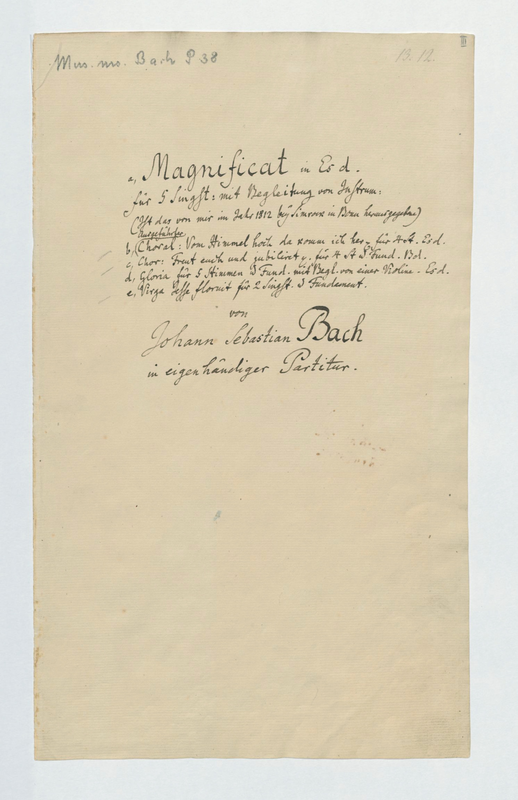 Mus. ms. Bach P 38
13. 12.
a, Magnificat in Es d.
für 5 Singst: mit Begleitung von Instrum:
(Ist das von mir im Jahr 1812 bey Simrock in Bonn herausgegebne)
Ausgeführte
b, Choral: Vom Himmel hoch da komm ich her für 4 St. Es d.
c, Chor: Freut euch und jubiliret für 4 St Fund. d.
d, Gloria für 5 Stimmen Fund. mit Begl. von einer Violine. Es d.
e, Virga Jesse floruit für 2 Singst. Fundament.
von
Johann Sebastian Bach
in eigenhändiger Partitur.